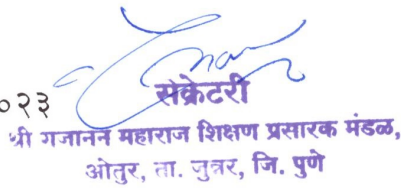 ०२३
सेक्रेटरी
श्री गजानन महाराज शिक्षण प्रसारक मंडळ,
ओतुर, ता. जुन्नर, जि. पुणे